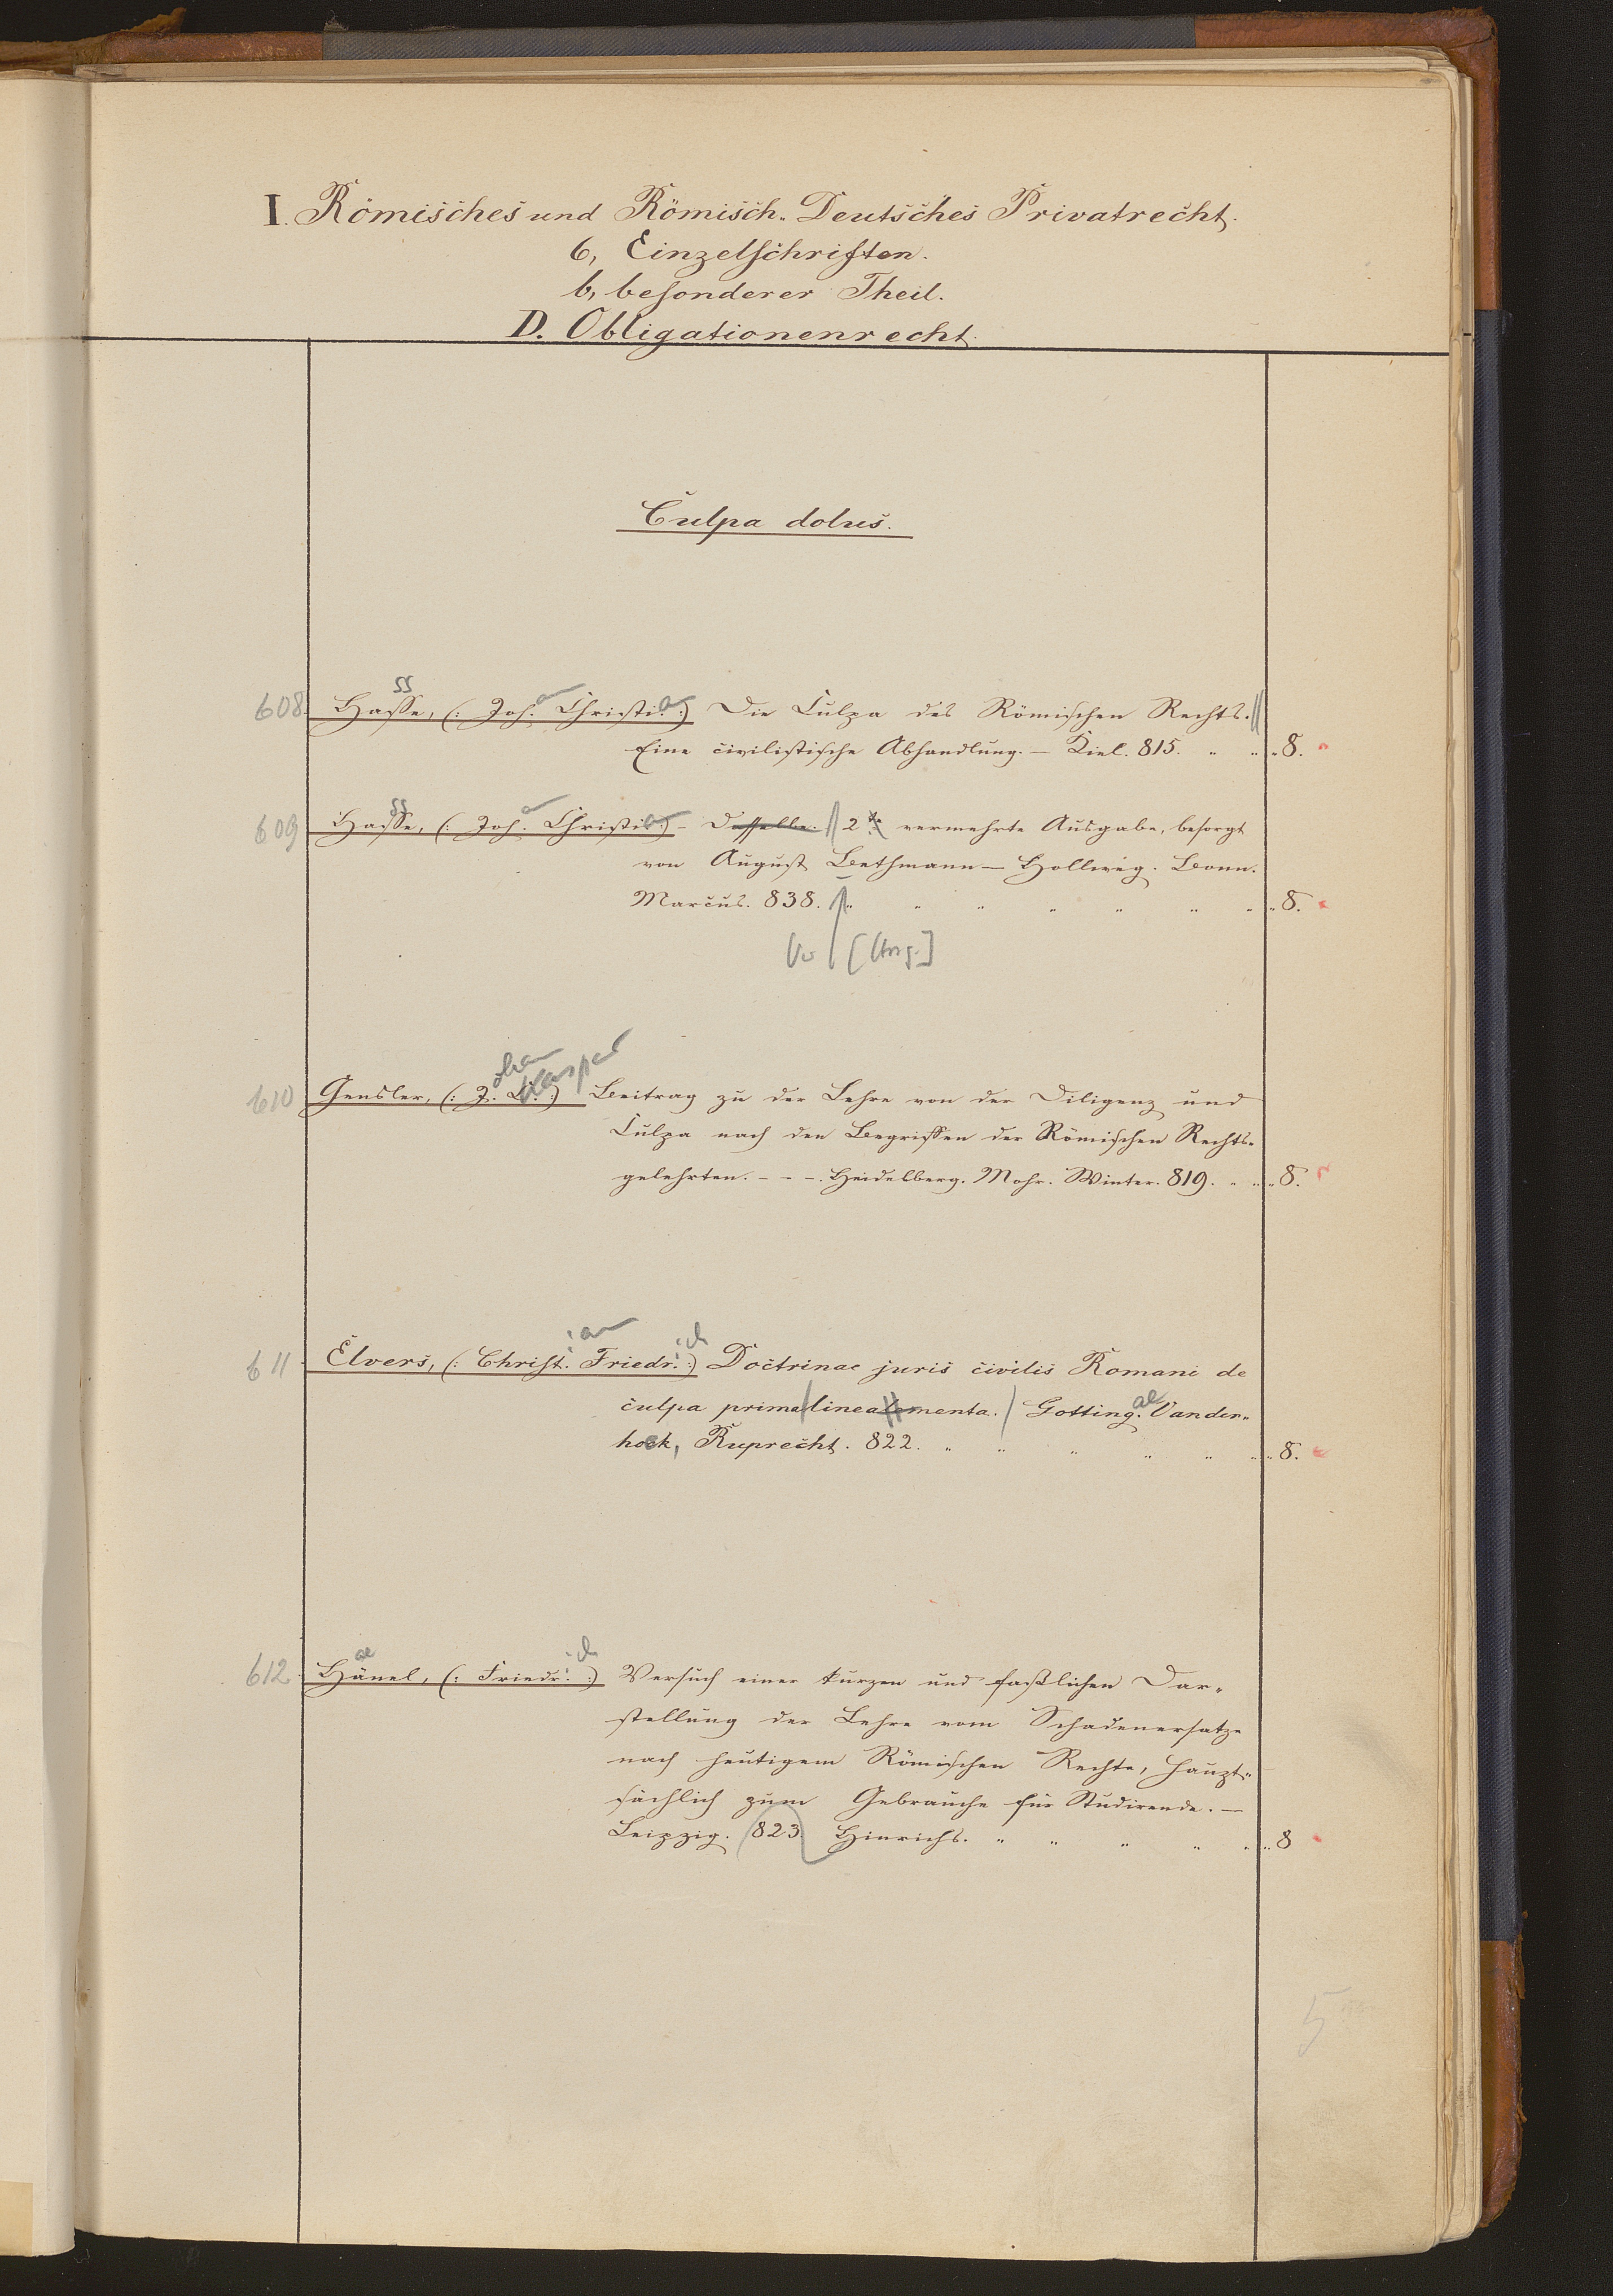 I. Römisches und Römisch-Deutsches Privatrecht.
6, Einzelschriften.
b, besonderer Theil.
D. Obligationenrecht.
Culpa dolus.
608. Hasse, (: Joh. Christi. :) Die Culpa des Römischen Rechts.
Eine civilistische Abhandlung. — Kiel. 815. „ „ „ 8.
609 Hasse, (: Joh. Christi. :) - Dasselbe. 2te vermehrte Ausgabe, besorgt
von August Bethmann-Hollweg. Bonn.
Marcus. 838. „ „ „ „ „ „ „ 8.
610 Gensler, (: J. C. :) Beitrag zu der Lehre von der Diligenz und
Culpa nach den Begriffen der Römischen Rechts-
gelehrten. - - -. Heidelberg. Mohr. Winter. 819. „ „ „ 8.
611 Elvers, (: Christ. Friedr. :) Doctrinae juris civilis Romani de
culpa prima lineamenta. Gotting. Vander-
hoek, Ruprecht. 822. „ „ „ „ „ „ „ 8.
612. Hänel, (: Friedr. :) Versuch einer kurzen und faßlichen Dar-
stellung der Lehre vom Schadenersatze
nach heutigem Römischen Rechte, haupt-
sächlich zum Gebrauche für Studirende. —
Leipzig. 823. Hinrichs. „ „ „ „ „ „ 8